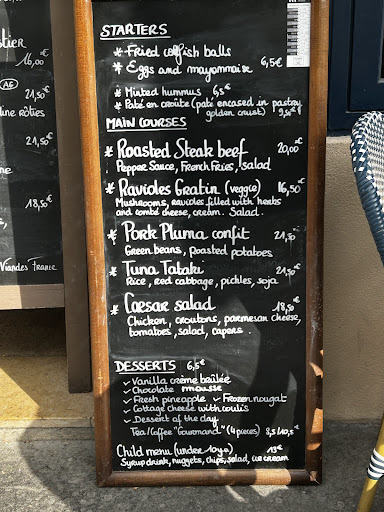 STARTERS
* Fried catfish balls
* Eggs and mayonnaise 6,5€
* Minted hummus 6,5
* Paté en croûte (paté encased in pastry,
golden crust) 9,50€
MAIN COURSES
* Roasted Steak beef 20,00€
Pepper Sauce, French Fries, salad
* Ravioles Gratin (veggie) 16,50€
Mushrooms, ravioles filled with herbs
and comté cheese, cream. Salad.
* Pork Pluma confit 21,50€
Green beans, roasted potatoes
* Tuna Tataki 21,50€
Rice, red cabbage, pickles, soja
* Caesar salad 18,50€
Chicken, croutons, parmesan cheese,
tomatoes, salad, capers.
DESSERTS 6,5€
✓ Vanilla crème brûlée
✓ Chocolate mousse
✓ Fresh pineapple ✓ Frozen nougat
✓ Cottage cheese with coulis
✓ Dessert of the day
Tea/Coffee "Gourmand" (4 pieces) 8,5/10,5€
Child menu (under 10yo) 13€
Syrup drink, nuggets, chips, salad, ice cream
tier
16,00€
AG
21,50€
ine rôties
21,50€
18,50€
Viandes France